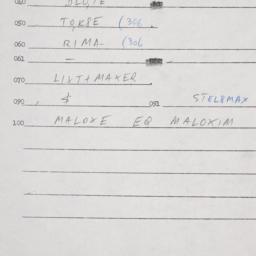 050 TORSE (306
060 RIMA- (306
061 —
070 LIXT+MAKER
090 $ 091 STEL8MAX
100 MALOXE EQ MALOXIM